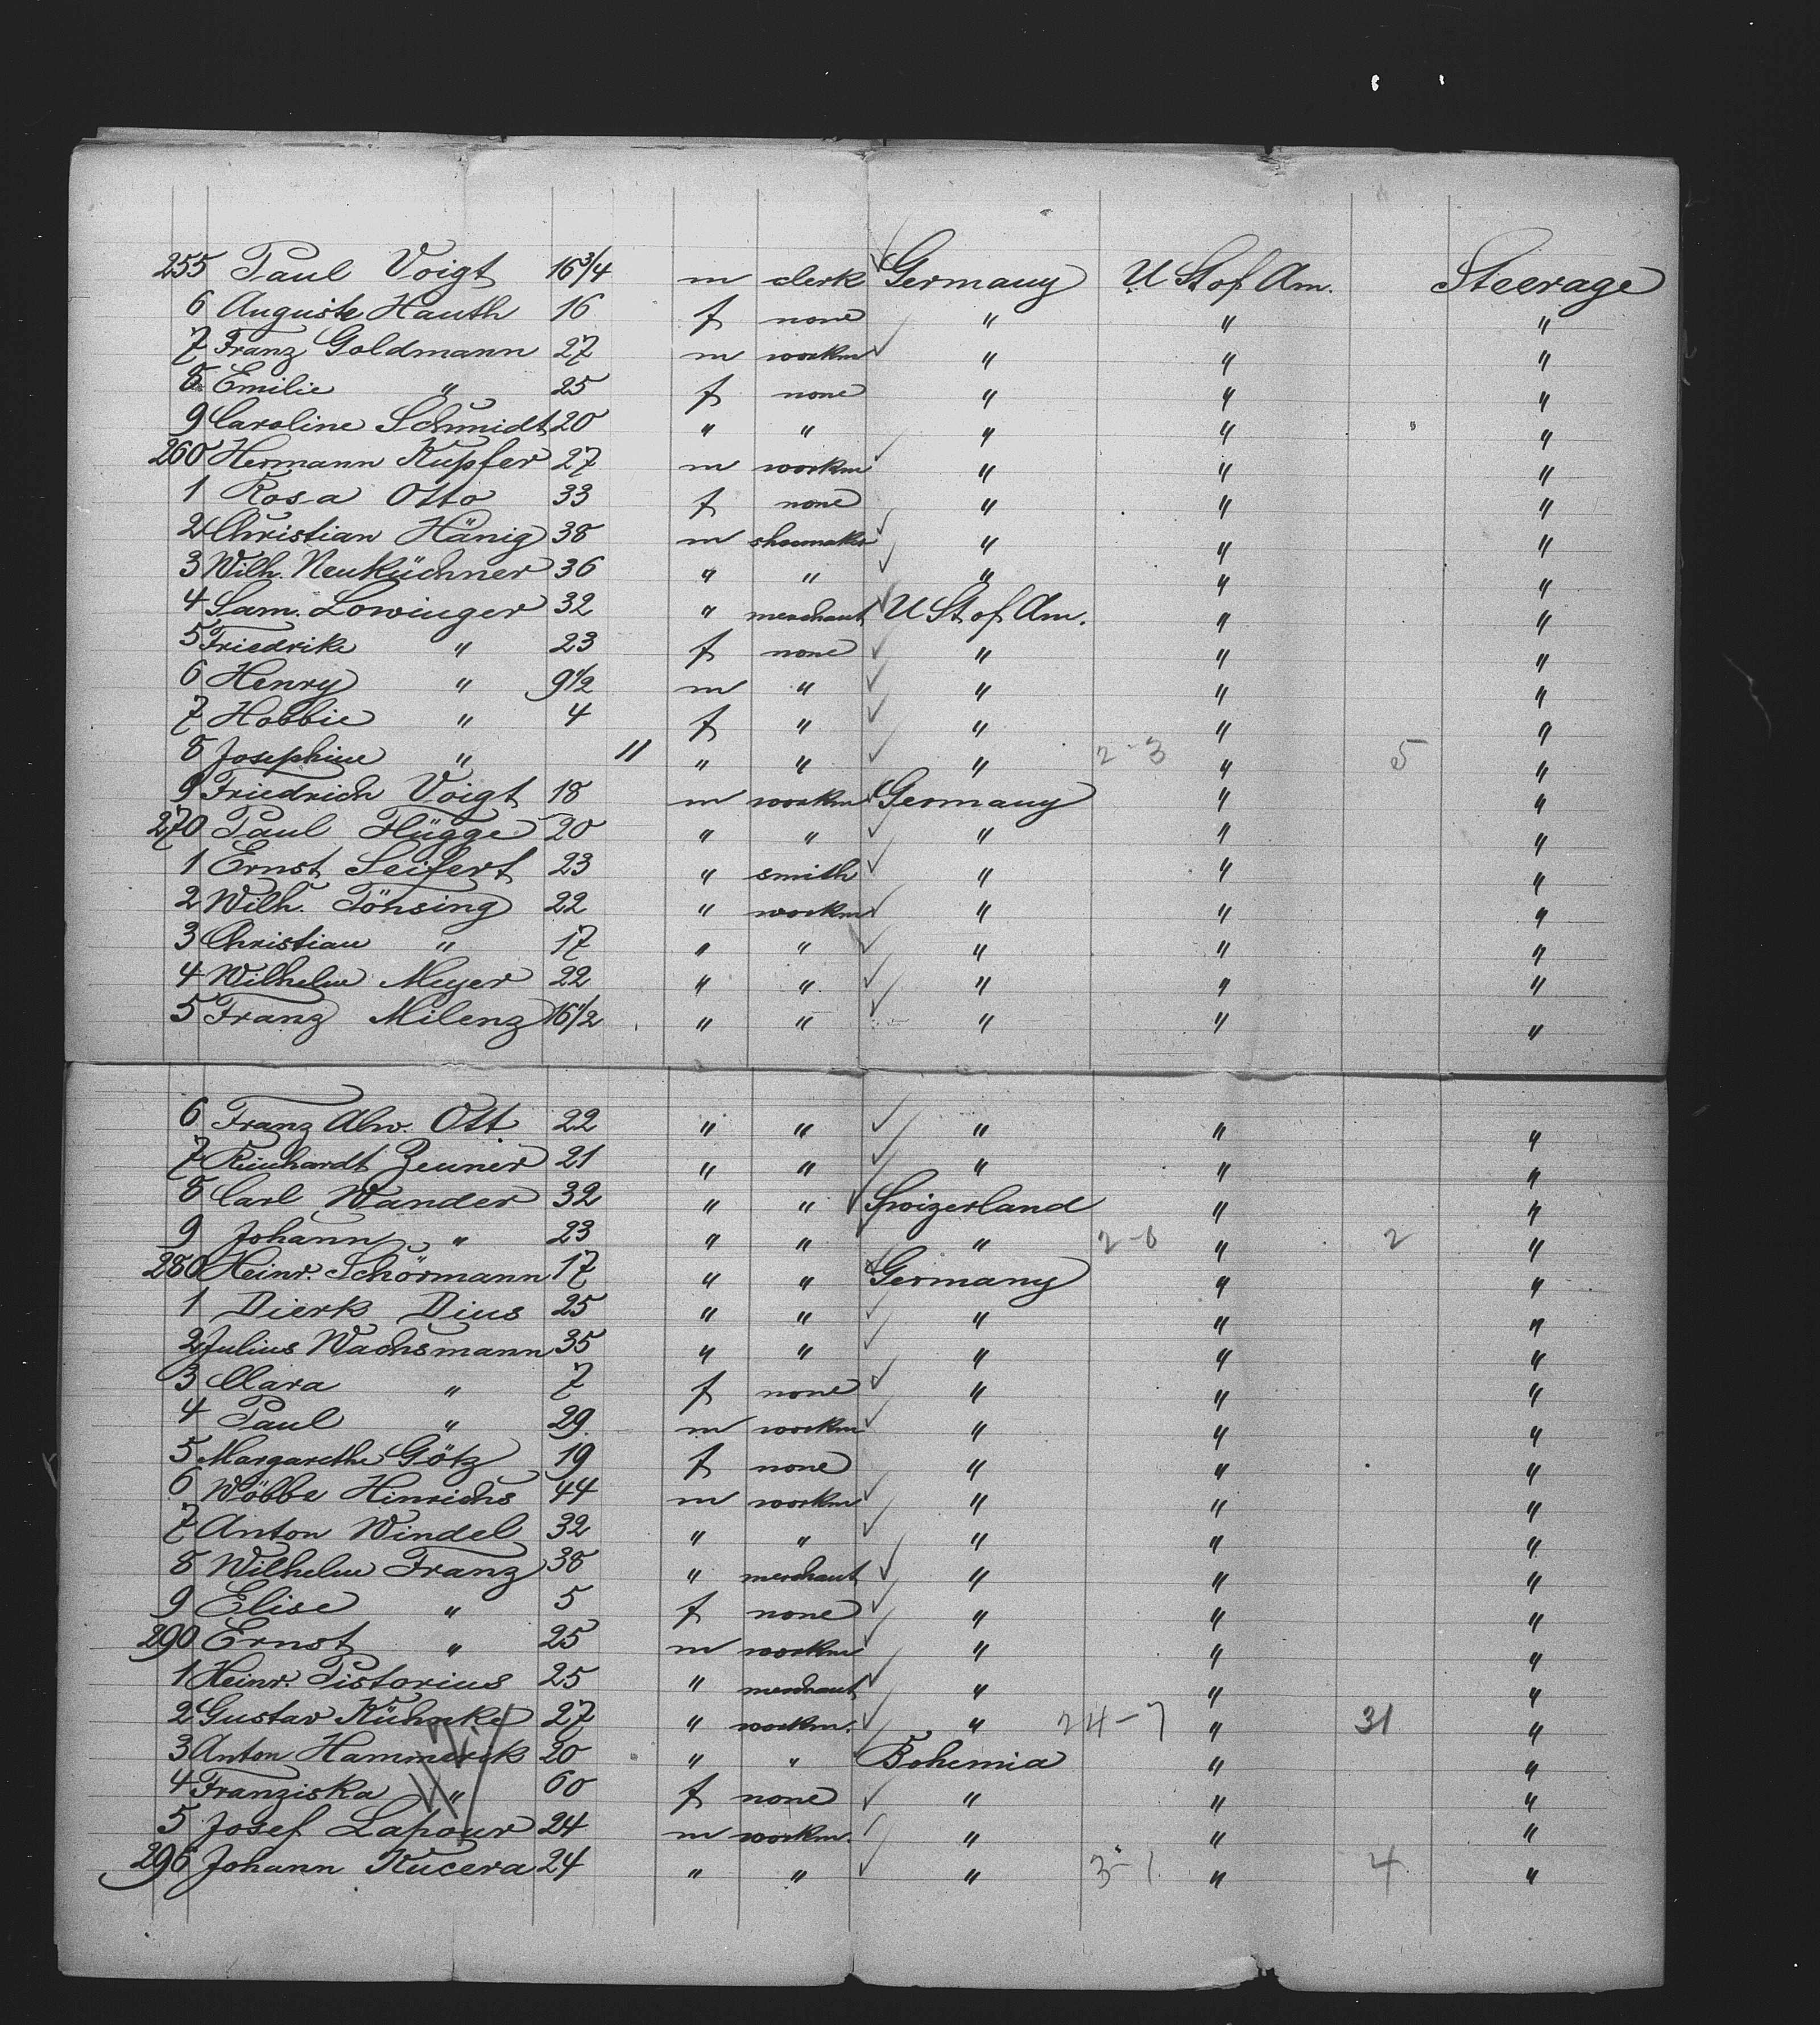 255 Paul Voigt 16 3/4 m clerk Germany U St of Am. Steerage
6 Auguste Hauth 16 f none " " "
7 Franz Goldmann 27 m workm " " "
8 Emilie " 25 f none " " "
9 Caroline Schmidt 20 " " " " "
260 Hermann Kupfer 27 m workm " " "
1 Rosa Otto 33 f none " " "
2 Christian Hänig 38 m shoemaker " " "
3 Wilh. Neuküchner 36 " " " " "
4 Sam. Lowinger 32 " merchant U St of Am. " "
5 Friedrike " 23 f none " " "
6 Henry " 9 1/2 m " " " "
7 Hobbie " 4 f " " " "
8 Josephine " 11 " " " 2-3 " 5 "
9 Friedrich Voigt 18 m workm Germany " "
270 Paul Flügge 20 " " " " "
1 Ernst Seifert 23 " smith " " "
2 Wilh. Tönsing 22 " workm " " "
3 Christian " 17 " " " " "
4 Wilhelm Meyer 22 " " " " "
5 Franz Milenz 16 1/2 " " " " "
6 Franz Alw. Ott 22 " " " " "
7 Reinhardt Zeuner 21 " " " " "
8 Carl Wander 32 " " Swizerland " "
9 Johann " 23 " " " 2-0 " 2 "
280 Heinr. Schörmann 17 " " Germany " "
1 Dierk Dius 25 " " " " "
2 Julius Wachsmann 35 " " " " "
3 Clara " 7 f none " " "
4 Paul " 29 m workm " " "
5 Margarethe Götz 19 f none " " "
6 Wöbbe Hinrichs 44 m workm " " "
7 Anton Windel 32 " " " " "
8 Wilhelm Franz 38 " merchant " " "
9 Elise " 5 f none " " "
290 Ernst " 25 m workm " " "
1 Heinr. Pistorius 25 " merchant " " "
2 Gustav Kühnke 27 " workm. " 24-7 " 31 "
3 Anton Hammerik 20 " " Bohemia " "
4 Franziska " 60 f none " " "
5 Josef Lapour 24 m workm. " " "
296 Johann Kucera 24 " " " 3-1 " 4 "